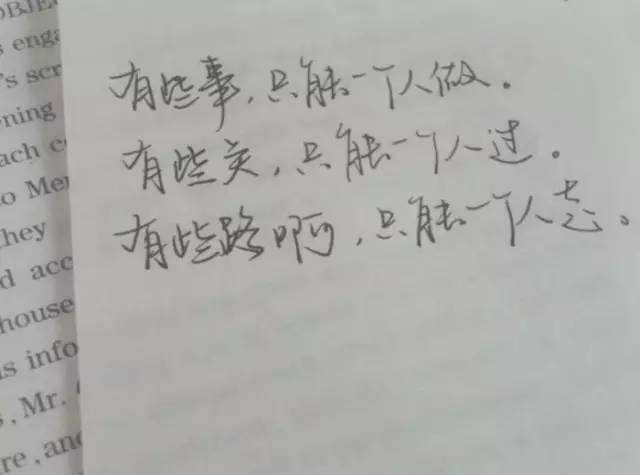 OBJE
s enga
's scr
ning
ach c
o Me
hey
d acc
house
s info
, Mr.
re, and
有些事,只能一个人做。
有些关,只能一个人过。
有些路啊,只能一个人走。